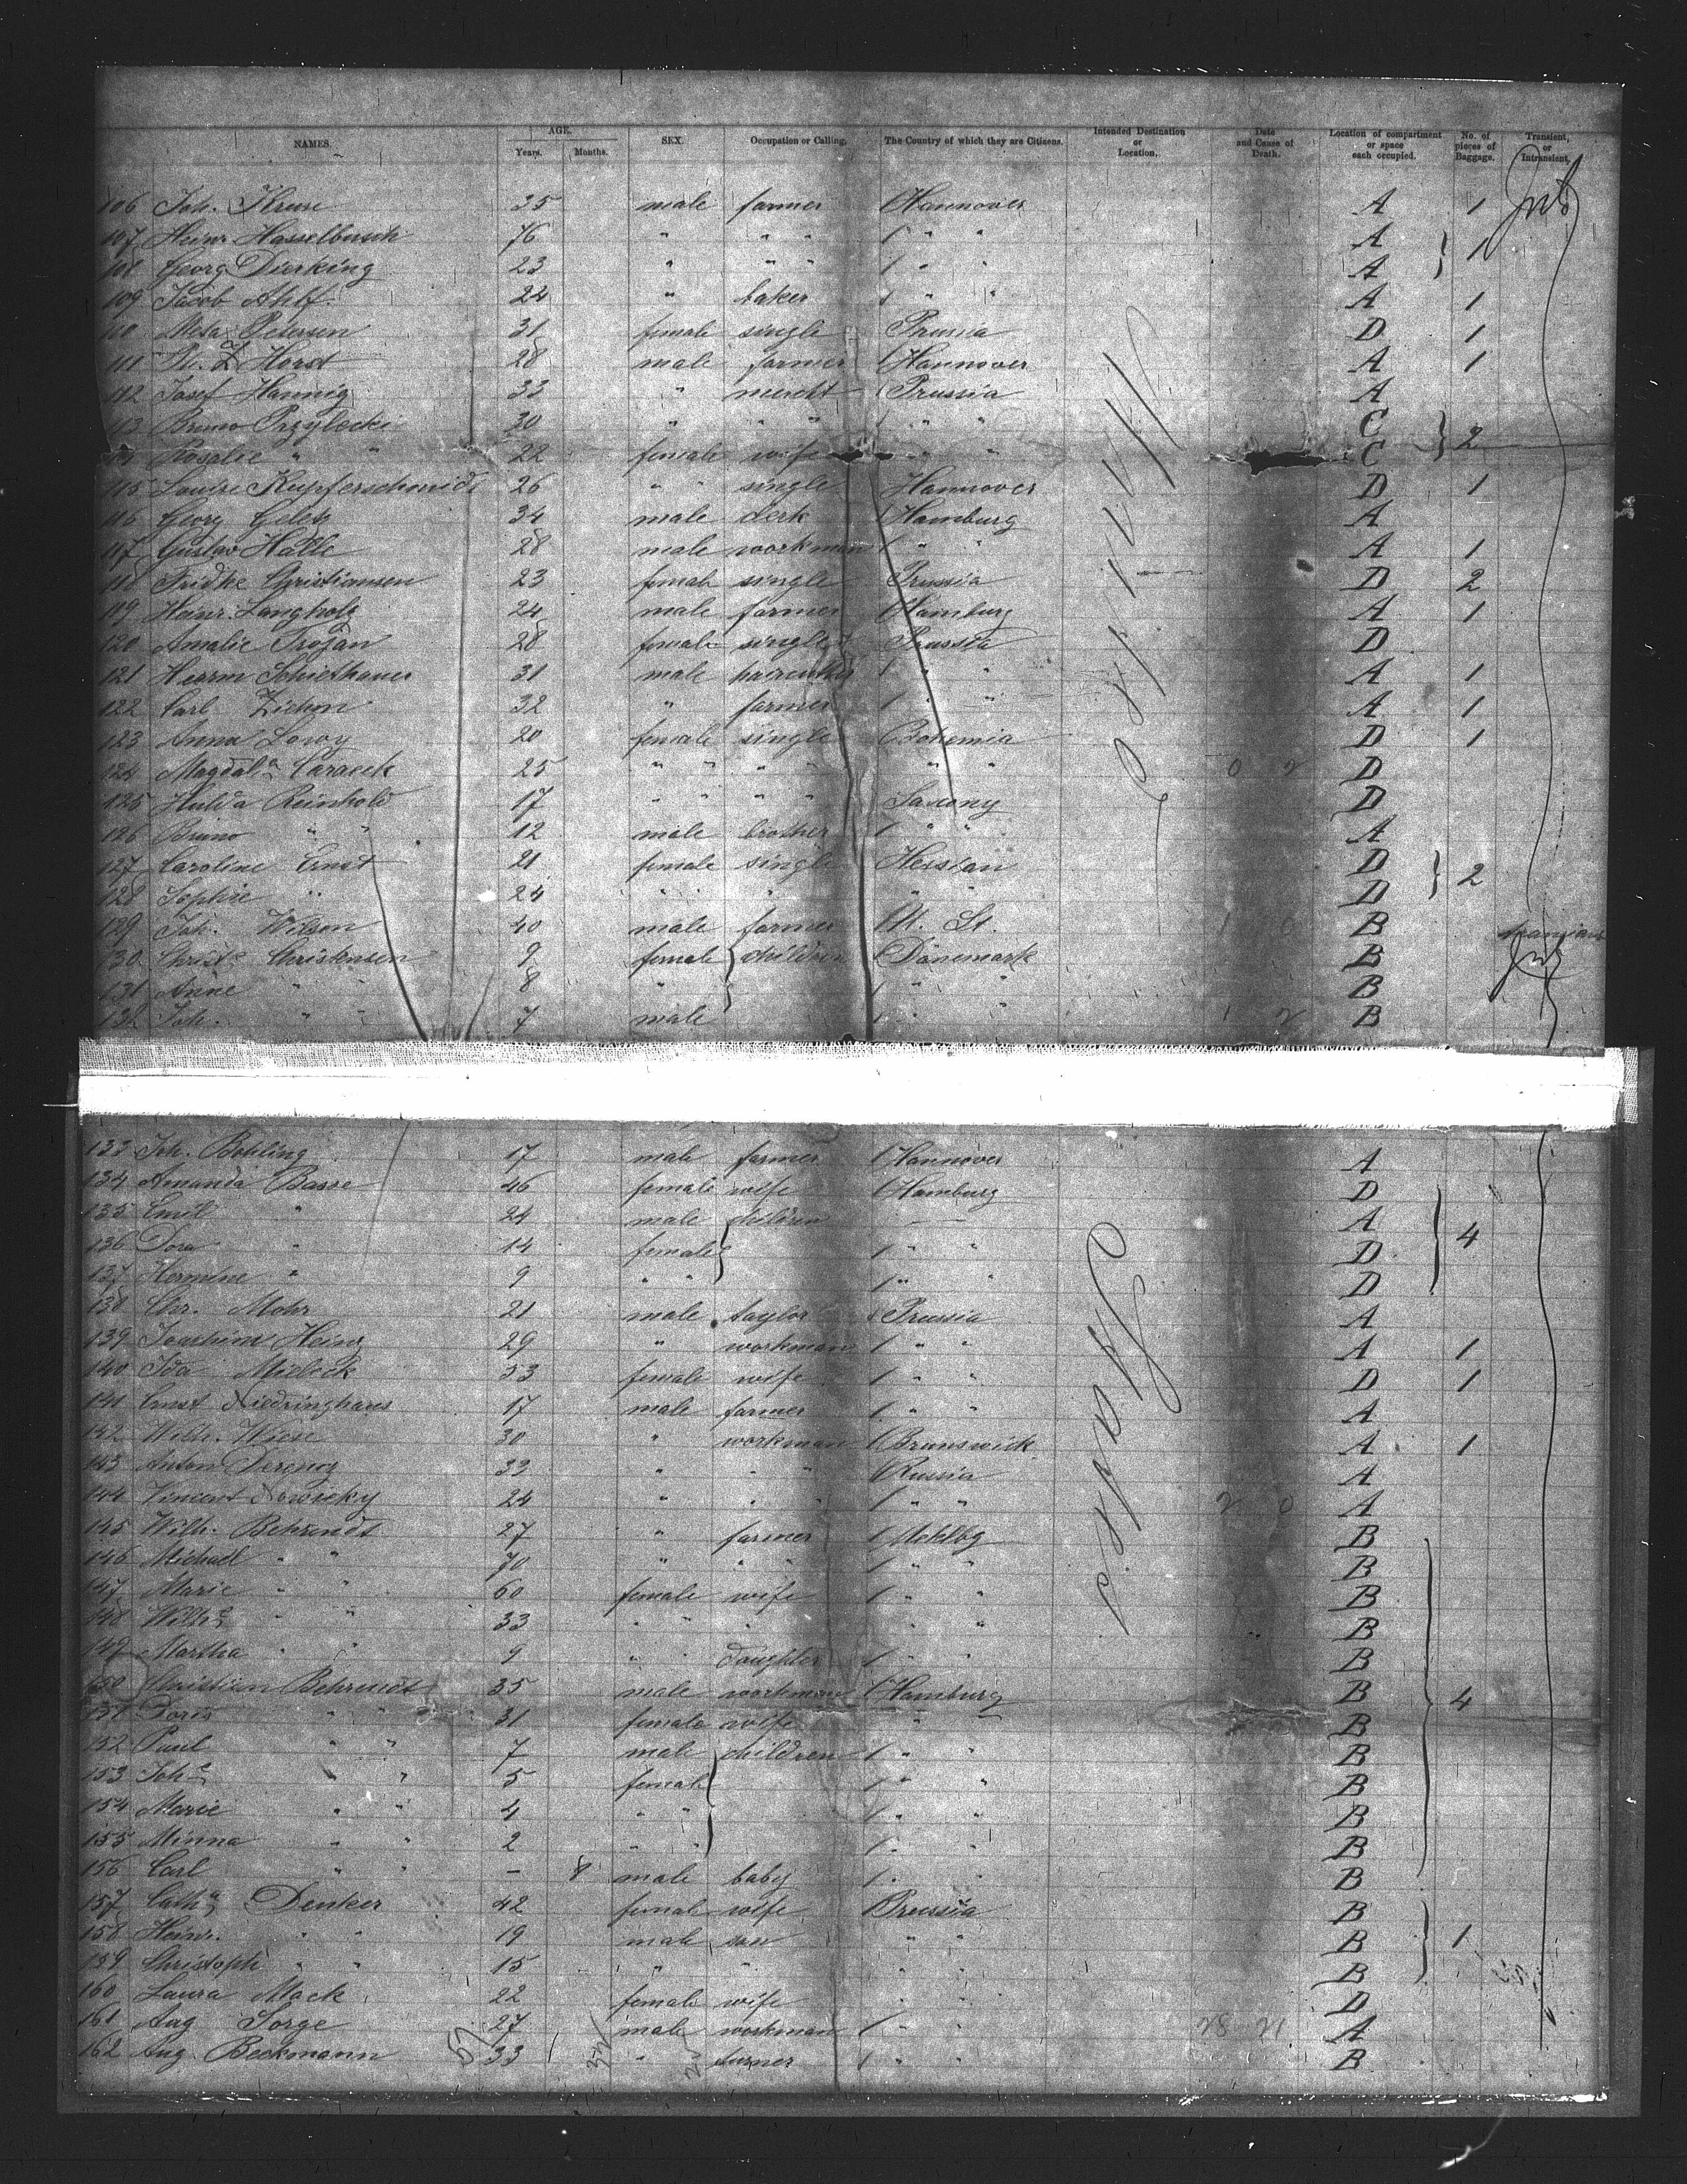 NAMES. AGE. Years. Months. SEX. Occupation or Calling. The Country of which they are Citizens. Intended Destination or Location. Date and Cause of Death. Location of compartment or space each occupied. No. of pieces of Baggage. Transient, or Intransient.
106 Joh. Kruse 35 male farmer Hannover A 1
107 Heinr Hasselbusch 76 " " " " " A
108 Georg Dierking 23 " " " " " A 1
109 Jacob Ahlf 22 " baker " " A 1
110 Meta Petersen 31 female single Prussia D 1
111 Horst 28 male farmer Hannover A 1
112 Josef Hannig 33 " mercht Prussia A
113 Bruno Przylecki 30 " " " " " C
114 Rosalie " " 22 female wife " " C 2
115 Louise Kupferschmidt 26 " " single Hannover D 1
116 Georg 34 male clerk Hamburg A
117 Gustav Halle 28 male workman " " A 1
118 Fridke Christiansen 23 female single Prussia D 2
119 Heinr. Langholz 24 male farmer Hamburg A 1
120 Amalie Trojan 28 female single Prussia D
121 Herrm 31 male " " A 1
122 Carl Ziehm 32 " farmer " " A 1
123 Anna Lowy 20 female single Bohemia D 1
124 Magdala 25 " " " " " " D
125 Hulda Reinhold 17 " " " " Saxony D
126 Bruno " " 12 male brother " " A
127 Caroline Ernst 21 female single Hessian D
128 Sophie " 24 " " " " " D 2
129 Joh. Wilson 40 male farmer U. St. B
130 Christe Christensen 9 female children Danemark B
131 Anne " " 8 " " " B
132 Joh. " " 7 male " " B
133 Joh. Bohling 17 male farmer Hannover A
134 Amanda Basse 46 female wife Hamburg D
135 Emil " 24 male children A
136 Dora " 14 female " " D 4
137 Hermine " 9 " " " " D
138 Chr. Mohr 21 male taylor Prussia A
139 Joachim Heinz 29 " workman " " A 1
140 Ida Mieleck 53 female wife " " D 1
141 Ernst Niedringhaus 17 male farmer " " A
142 Wilh. Wiese 30 " workman Brunswick A 1
143 Anton 33 " " " Russia A
144 Vincent 24 " " " " " A
145 Wilh. Behrends 27 " farmer Mcklbg B
146 Michael " " 70 " " " " " B
147 Marie " " 60 female wife " " B
148 Wilhe " " 33 " " " " " B
149 Martha " " 9 " " daughter " " B
150 Christian Behrends 35 male workman Hamburg B 4
151 Doris " " 31 female wife " " B
152 Paul " " 7 male children " " B
153 Johe " " 5 female " " B
154 Marie " " 4 " " " " B
155 Minna " " 2 " " " " B
156 Carl " " - 8 male baby " " B
157 Catha Denker 42 female wife Prussia B
158 Heinr. " " 19 male son " " B 1
159 Christoph " " 15 " " " " B
160 Laura Mack 22 female wife " " D
161 Aug Sorge 27 male workman " " A
162 Aug. Beckmann 33 " turner " " B